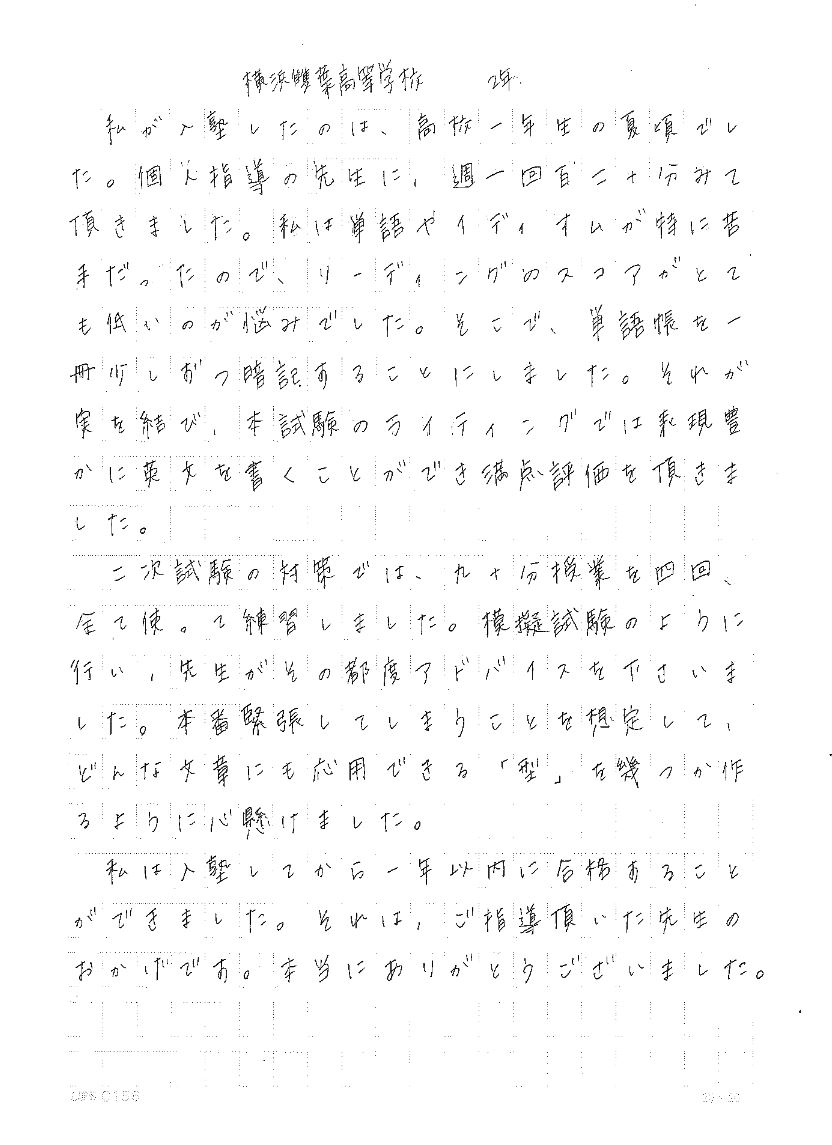 横浜雙葉高等学校　2年
私が入塾したのは、高校一年生の夏頃でし
た。個人指導の先生に、週一回百二十分みて
頂きました。私は単語やイディオムが特に苦
手だったので、リーディングのスコアがとて
も低いのが悩みでした。そこで、単語帳を一
冊少しずつ暗記することにしました。それが
実を結び、本試験のライティングでは表現豊
かに英文を書くことができ満点評価を頂きま
した。
二次試験の対策では、九十分授業を四回、
全て使って練習しました。模擬試験のように
行い、先生がその都度アドバイスを下さいま
した。本番緊張してしまうことを想定して、
どんな文章にも応用できる「型」を幾つか作
るように心懸けました。
私は入塾してから一年以内に合格すること
ができました。それは、ご指導頂いた先生の
おかげです。本当にありがとうございました。